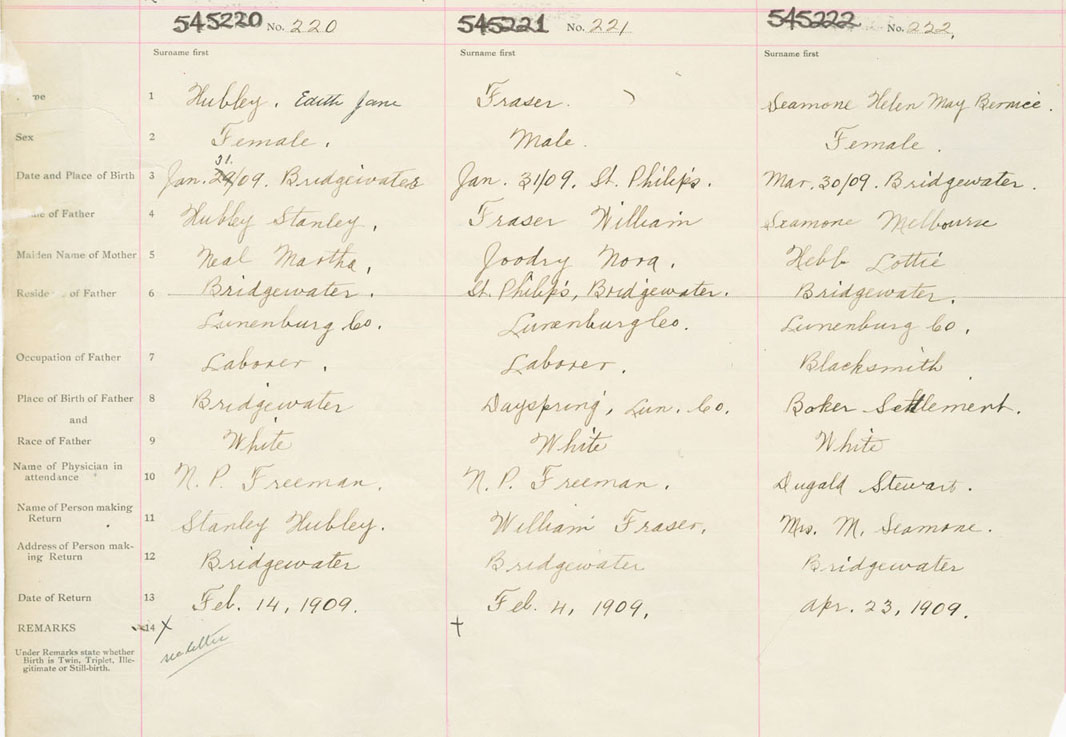 545220 No. 220 545221 No. 221 545222 No. 222.
Surname first Surname first Surname first
1 Hubley, Edith Jane Fraser. Seamone Helen May Bernice.
Sex 2 Female. Male. Female.
31.
Date and Place of Birth 3 Jan. /09. Bridgewater Jan. 31/09. St. Philip's. Mar. 30/09. Bridgewater.
of Father 4 Hubley Stanley, Fraser William Seamone Melbourne
Maiden Name of Mother 5 Neal Martha, Joodry Nora. Hebb Lottie
Reside of Father 6 Bridgewater. St. Philip's, Bridgewater. Bridgewater.
Lunenburg Co. Lunenburg Co. Lunenburg Co.
Occupation of Father 7 Laborer, Laborer. Blacksmith
Place of Birth of Father 8 Bridgewater Dayspring, Lun. Co. Boker Settlement.
and
Race of Father 9 White White White
Name of Physician in
attendance 10 N. P. Freeman. N. P. Freeman. Dugald Stewart.
Name of Person making
Return 11 Stanley Hubley. William Fraser, Mrs. M. Seamone.
Address of Person mak-
ing Return 12 Bridgewater Bridgewater Bridgewater
Date of Return 13 Feb. 14, 1909. Feb. 4, 1909. Apr. 23, 1909.
REMARKS 14 X †
see letter
Under Remarks state whether
Birth is Twin, Triplet, Ille-
gitimate or Still-birth.